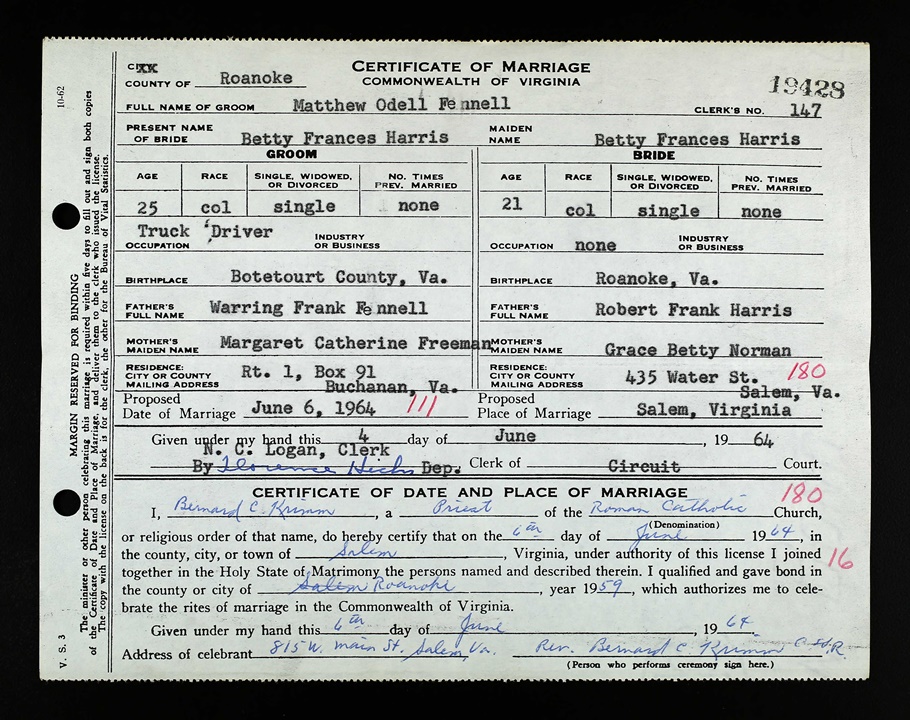 CITY XX
COUNTY OF Roanoke
CERTIFICATE OF MARRIAGE
COMMONWEALTH OF VIRGINIA
19428
FULL NAME OF GROOM Matthew Odell Fennell
CLERK'S NO. 147
PRESENT NAME OF BRIDE Betty Frances Harris MAIDEN NAME Betty Frances Harris
GROOM BRIDE
AGE RACE SINGLE, WIDOWED, OR DIVORCED NO. TIMES PREV. MARRIED AGE RACE SINGLE, WIDOWED, OR DIVORCED NO. TIMES PREV. MARRIED
25 col single none 21 col single none
OCCUPATION Truck Driver INDUSTRY OR BUSINESS OCCUPATION none INDUSTRY OR BUSINESS
BIRTHPLACE Botetourt County, Va. BIRTHPLACE Roanoke, Va.
FATHER'S FULL NAME Warring Frank Fennell FATHER'S FULL NAME Robert Frank Harris
MOTHER'S MAIDEN NAME Margaret Catherine Freeman MOTHER'S MAIDEN NAME Grace Betty Norman
RESIDENCE: CITY OR COUNTY MAILING ADDRESS Rt. 1, Box 91 Buchanan, Va. RESIDENCE: CITY OR COUNTY MAILING ADDRESS 435 Water St. 180 Salem, Va.
Proposed Date of Marriage June 6, 1964 111 Proposed Place of Marriage Salem, Virginia
Given under my hand this 4 day of June, 19 64
N. C. Logan, Clerk
By Florence Hicks Dep. Clerk of Circuit Court.
CERTIFICATE OF DATE AND PLACE OF MARRIAGE 180
I, Bernard C. Krimm, a Priest of the Roman Catholic Church,
(Denomination)
or religious order of that name, do hereby certify that on the 6th day of June 1964, in
the county, city, or town of Salem, Virginia, under authority of this license I joined 16
together in the Holy State of Matrimony the persons named and described therein. I qualified and gave bond in
the county or city of Salem Roanoke, year 1959, which authorizes me to cele-
brate the rites of marriage in the Commonwealth of Virginia.
Given under my hand this 6th day of June, 1964.
Address of celebrant 815 W. Main St., Salem, Va. Rev. Bernard C. Krimm C.SS.R.
(Person who performs ceremony sign here.)
V. S. 3
10-62
MARGIN RESERVED FOR BINDING
The minister or other person celebrating this marriage is required within five days to fill out and sign both copies
of the Certificate of Date and Place of Marriage, and deliver them to the clerk who issued the license.
The copy with the license on the back is for the clerk, the other for the Bureau of Vital Statistics.